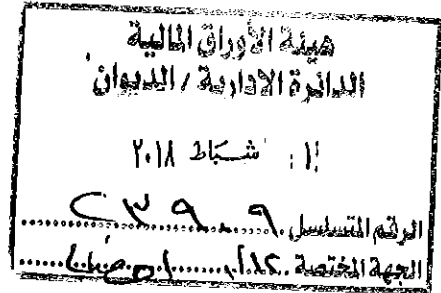 هيئة الأوراق المالية
الدائرة الادارية / الديوان
١١ شباط ٢٠١٨
الرقم المتسلسل
الجهة المختصة